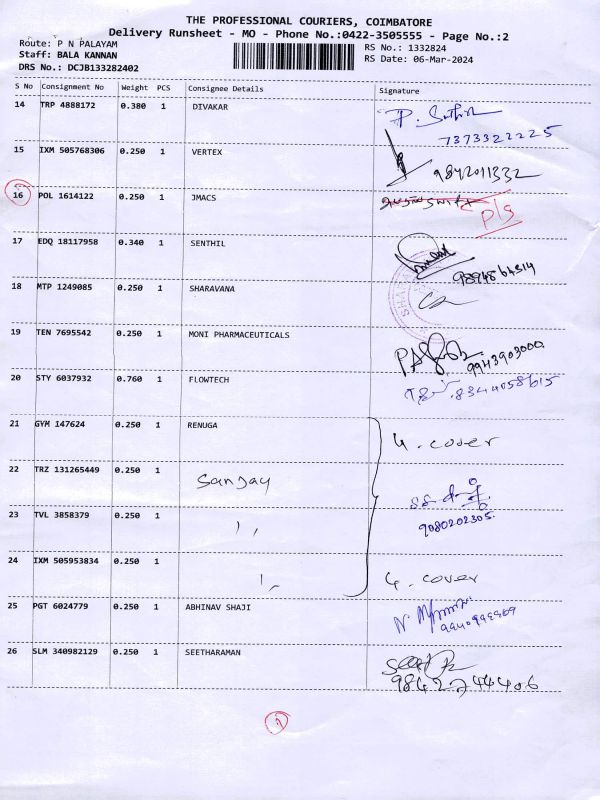 THE PROFESSIONAL COURIERS, COIMBATORE
Delivery Runsheet - MO - Phone No.:0422-3505555 - Page No.:2
Route: P N PALAYAM
RS No.: 1332824
Staff: BALA KANNAN
RS Date: 06-Mar-2024
DRS No.: DCJB133282402
S No Consignment No Weight PCS Consignee Details Signature
14 TRP 4888172 0.380 1 DIVAKAR
7373322225
15 IXM 505768306 0.250 1 VERTEX
9842011332
16 POL 1614122 0.250 1 JMACS
P/S
17 EDQ 18117958 0.340 1 SENTHIL
9894864314
18 MTP 1249085 0.250 1 SHARAVANA
19 TEN 7695542 0.250 1 MONI PHARMACEUTICALS
9943903000
20 STY 6037932 0.760 1 FLOWTECH
8344058615
21 GYM 147624 0.250 1 RENUGA
4. cover
22 TRZ 131265449 0.250 1 Sanjay
23 TVL 3858379 0.250 1 ,,
9080202305
24 IXM 505953834 0.250 1 ,,
4. cover
25 PGT 6024779 0.250 1 ABHINAV SHAJI
26 SLM 340982129 0.250 1 SEETHARAMAN
9842744406
1